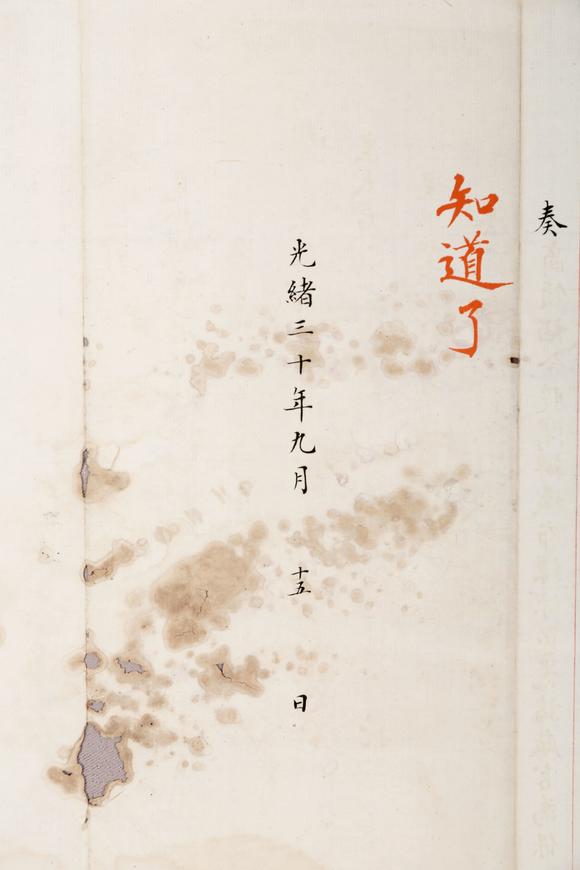 奏
知道了
光緒三十年九月十五日